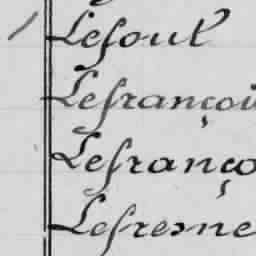 Lefoul
Lefrançoi
Lefranço
Lefresne